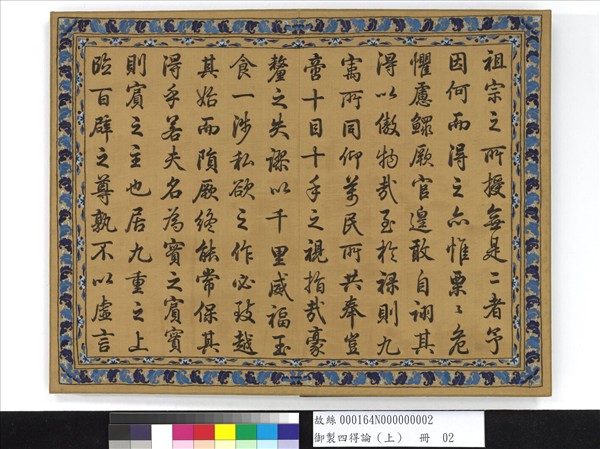 祖宗之所授無是二者予
因何而得之亦惟栗〻危
懼慮鰥厥官遑敢自詡其
得以傲物哉至於祿則九
寓所同仰萬民所共奉豈
啻十目十手之視指哉豪
釐之失謬以千里威福玉
食一涉私欲之作必致越
其始而隕厥終能常保其
得乎若夫名為實之賓實
則賓之主也居九重之上
臨百辟之尊孰不以虛言
故絲000164N000000002
御製四得論（上） 冊 02